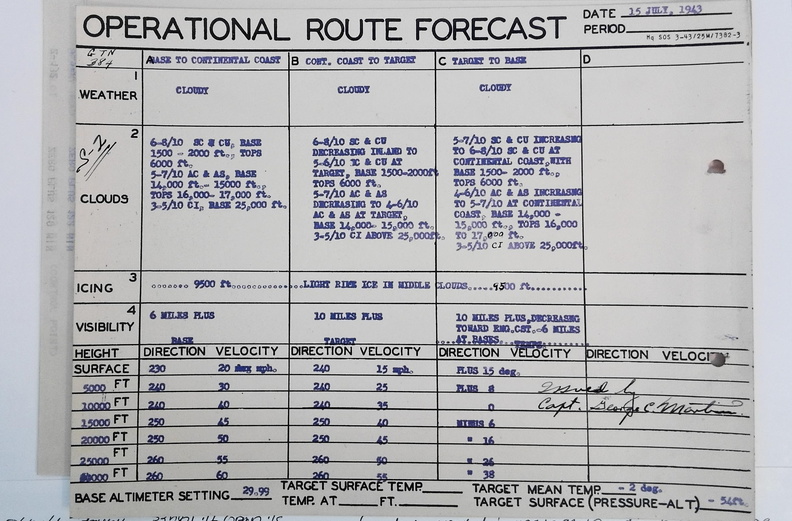 OPERATIONAL ROUTE FORECAST
DATE 15 JULY, 1943
PERIOD
Hq SOS 3-43/25M/7382-3
GTN
384
A BASE TO CONTINENTAL COAST B CONT. COAST TO TARGET C TARGET TO BASE D
1
WEATHER CLOUDY CLOUDY CLOUDY
2
CLOUDS
S-2
6-8/10 SC & CU, BASE
1500 - 2000 ft., TOPS
6000 ft.
5-7/10 AC & AS, BASE
14,000 ft.- 15000 ft.
TOPS 16,000- 17,000 ft.
3-5/10 CI, BASE 25,000 ft.
6-8/10 SC & CU
DECREASING INLAND TO
5-6/10 SC & CU AT
TARGET, BASE 1500-2000ft
TOPS 6000 ft.
5-7/10 AC & AS
DECREASING TO 4-6/10
AC & AS AT TARGET,
BASE 14,000- 15,000 ft.
3-5/10 CI ABOVE 25,000ft.
5-7/10 SC & CU INCREASING
TO 6-8/10 SC & CU AT
CONTINENTAL COAST, WITH
BASE 1500- 2000 ft.,
TOPS 6000 ft.
4-6/10 AC & AS INCREASING
TO 5-7/10 AT CONTINENTAL
COAST, BASE 14,000 -
15,000 ft., TOPS 16,000
TO 17,000 ft.
3-5/10 CI ABOVE 25,000ft.
3
ICING ....... 9500 ft...............LIGHT RIME ICE IN MIDDLE CLOUDS.....9500 ft...........
4
VISIBILITY
6 MILES PLUS
10 MILES PLUS
10 MILES PLUS, DECREASNG
TOWARD ENG.CST. -6 MILES
AT BASES.
BASE TARGET TEMPS.
HEIGHT DIRECTION VELOCITY DIRECTION VELOCITY DIRECTION VELOCITY DIRECTION VELOCITY
SURFACE 230 20 mph. 240 15 mph. PLUS 15 deg.
5000 FT 240 30 240 25 PLUS 8
10000 FT 240 40 240 35 0
15000 FT 250 45 250 40 MINUS 6
20000 FT 250 50 250 45 " 16
25000 FT 260 55 260 50 " 26
FT 260 60 260 55 " 38
Issued by
Capt. George C. Martin
BASE ALTIMETER SETTING 29.99 TARGET SURFACE TEMP. TARGET MEAN TEMP - 2 deg.
TEMP. AT FT. TARGET SURFACE (PRESSURE-ALT)